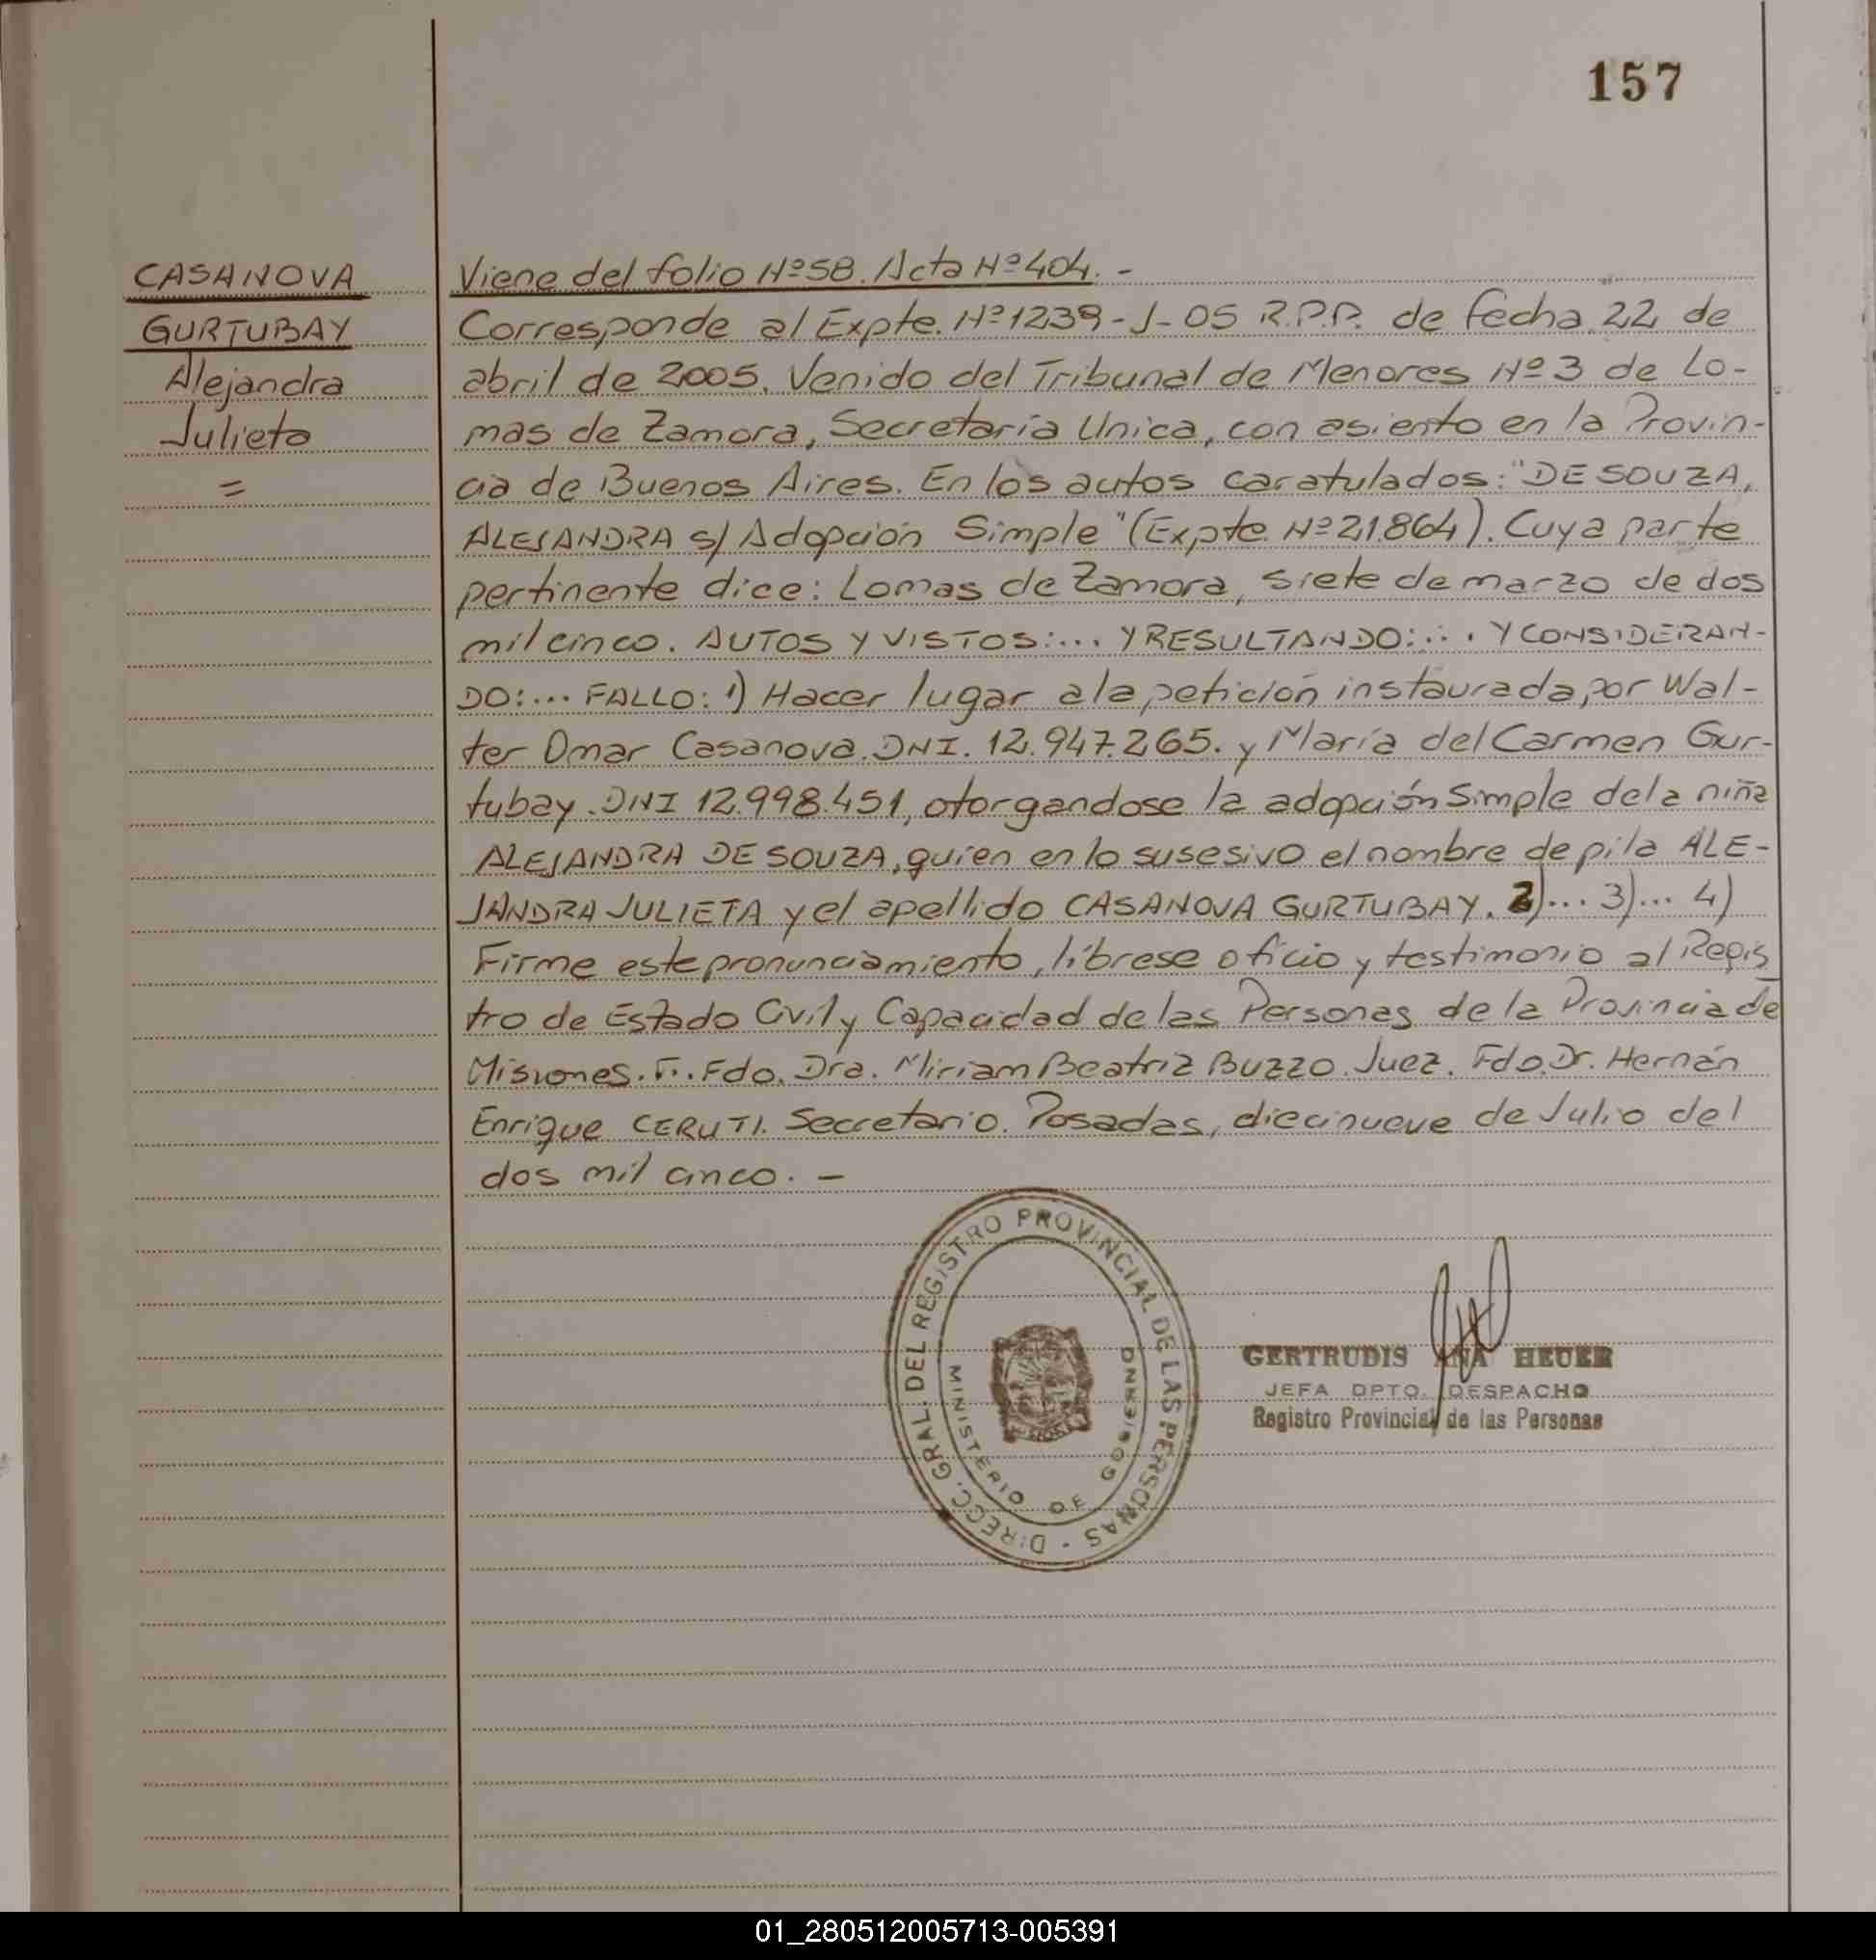 157
CASANOVA
GURTUBAY
Alejandra
Julieta
=
Viene del folio Nº58. Acta Nº404. -
Corresponde al Expte. Nº1239-J-05 R.P.P. de fecha 22 de
abril de 2005. Venido del Tribunal de Menores Nº3 de Lo-
mas de Zamora, Secretaría Unica, con asiento en la Provin-
cia de Buenos Aires. En los autos caratulados: "DE SOUZA,
ALEJANDRA s/ Adopción Simple" (Expte. Nº21.864). Cuya parte
pertinente dice: Lomas de Zamora, siete de marzo de dos
mil cinco. AUTOS Y VISTOS:... Y RESULTANDO:... Y CONSIDERAN-
DO:... FALLO: 1) Hacer lugar a la petición instaurada, por Wal-
ter Omar Casanova. DNI. 12.947.265. y María del Carmen Gur-
tubay. DNI 12.998.451, otorgandose la adopción Simple de la niña
ALEJANDRA DE SOUZA, quien en lo susesivo el nombre de pila ALE-
JANDRA JULIETA y el apellido CASANOVA GURTUBAY. 2)... 3)... 4)
Firme este pronunciamiento, líbrese oficio y testimonio al Regis
tro de Estado Civil y Capacidad de las Personas de la Provincia de
Misiones. Fdo. Dra. Miriam Beatriz BUZZO. Juez. Fdo. Dr. Hernán
Enrique CERUTI. Secretario. Posadas, diecinueve de Julio del
dos mil cinco. -
DIRECC. GRAL. DEL REGISTRO PROVINCIAL DE LAS PERSONAS -
MINISTERIO DE GOBIERNO
GERTRUDIS ANA HEUER
JEFA DPTO. DESPACHO
Registro Provincial de las Personas
01_280512005713-005391